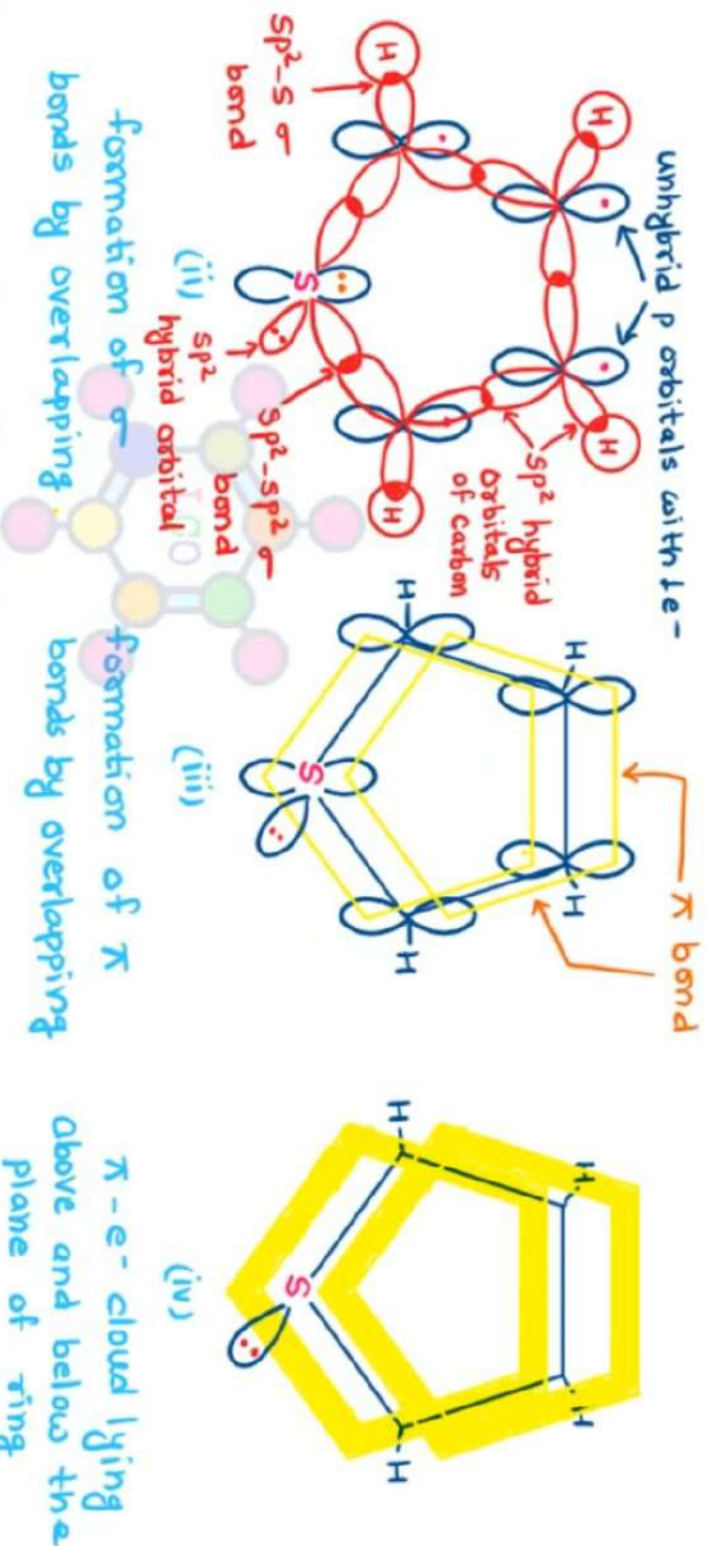 unhybrid p orbitals with 1e-
H
H
H
H
sp² hybrid
orbitals
of carbon
sp²-s σ
bond
S
sp²-sp² σ
bond
sp²
hybrid orbital
(ii)
formation of σ
bonds by overlapping
π bond
H
H
H
H
S
(iii)
formation of π
bonds by overlapping
H
H
H
H
S
(iv)
π-e- cloud lying
above and below the
plane of ring